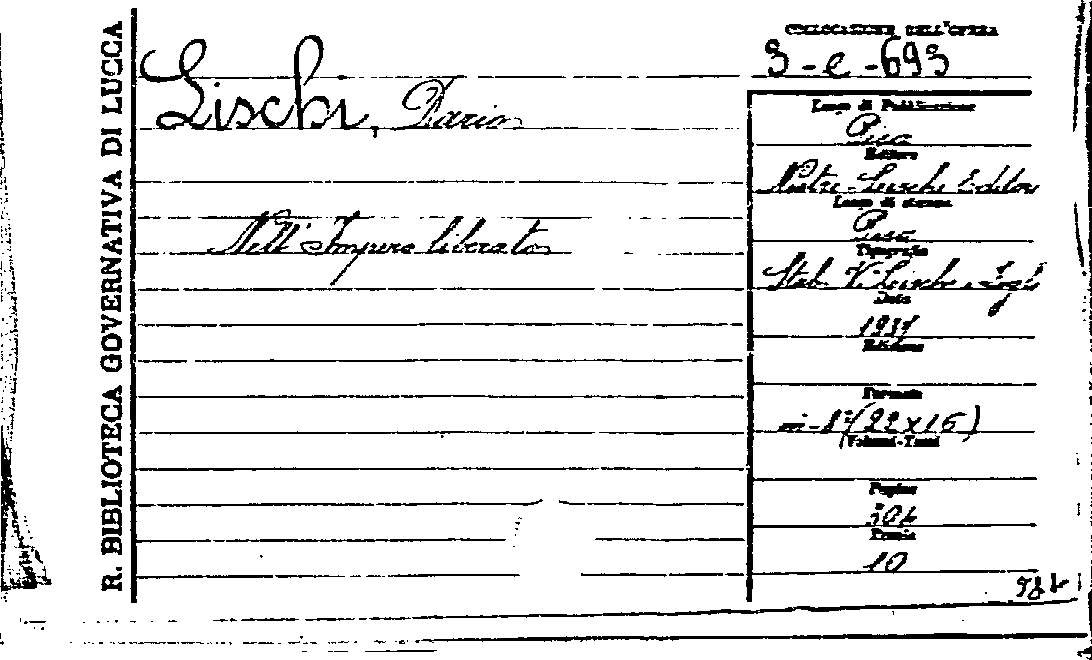 R. BIBLIOTECA GOVERNATIVA DI LUCCA
COLLOCAZIONE DELL'OPERA
3-e-693
Lischi, Dario
Nell'Impero liberato
Luogo di Pubblicazione
Pisa
Editore
Nistri-Lischi Editori
Luogo di stampa
Pisa
Tipografia
Stab. V. Lischi e Figli
Data
1937
Edizione
Formato
in-8°(22x15)
(Volumi-Tomi)
Pagine
304
Prezzo
10